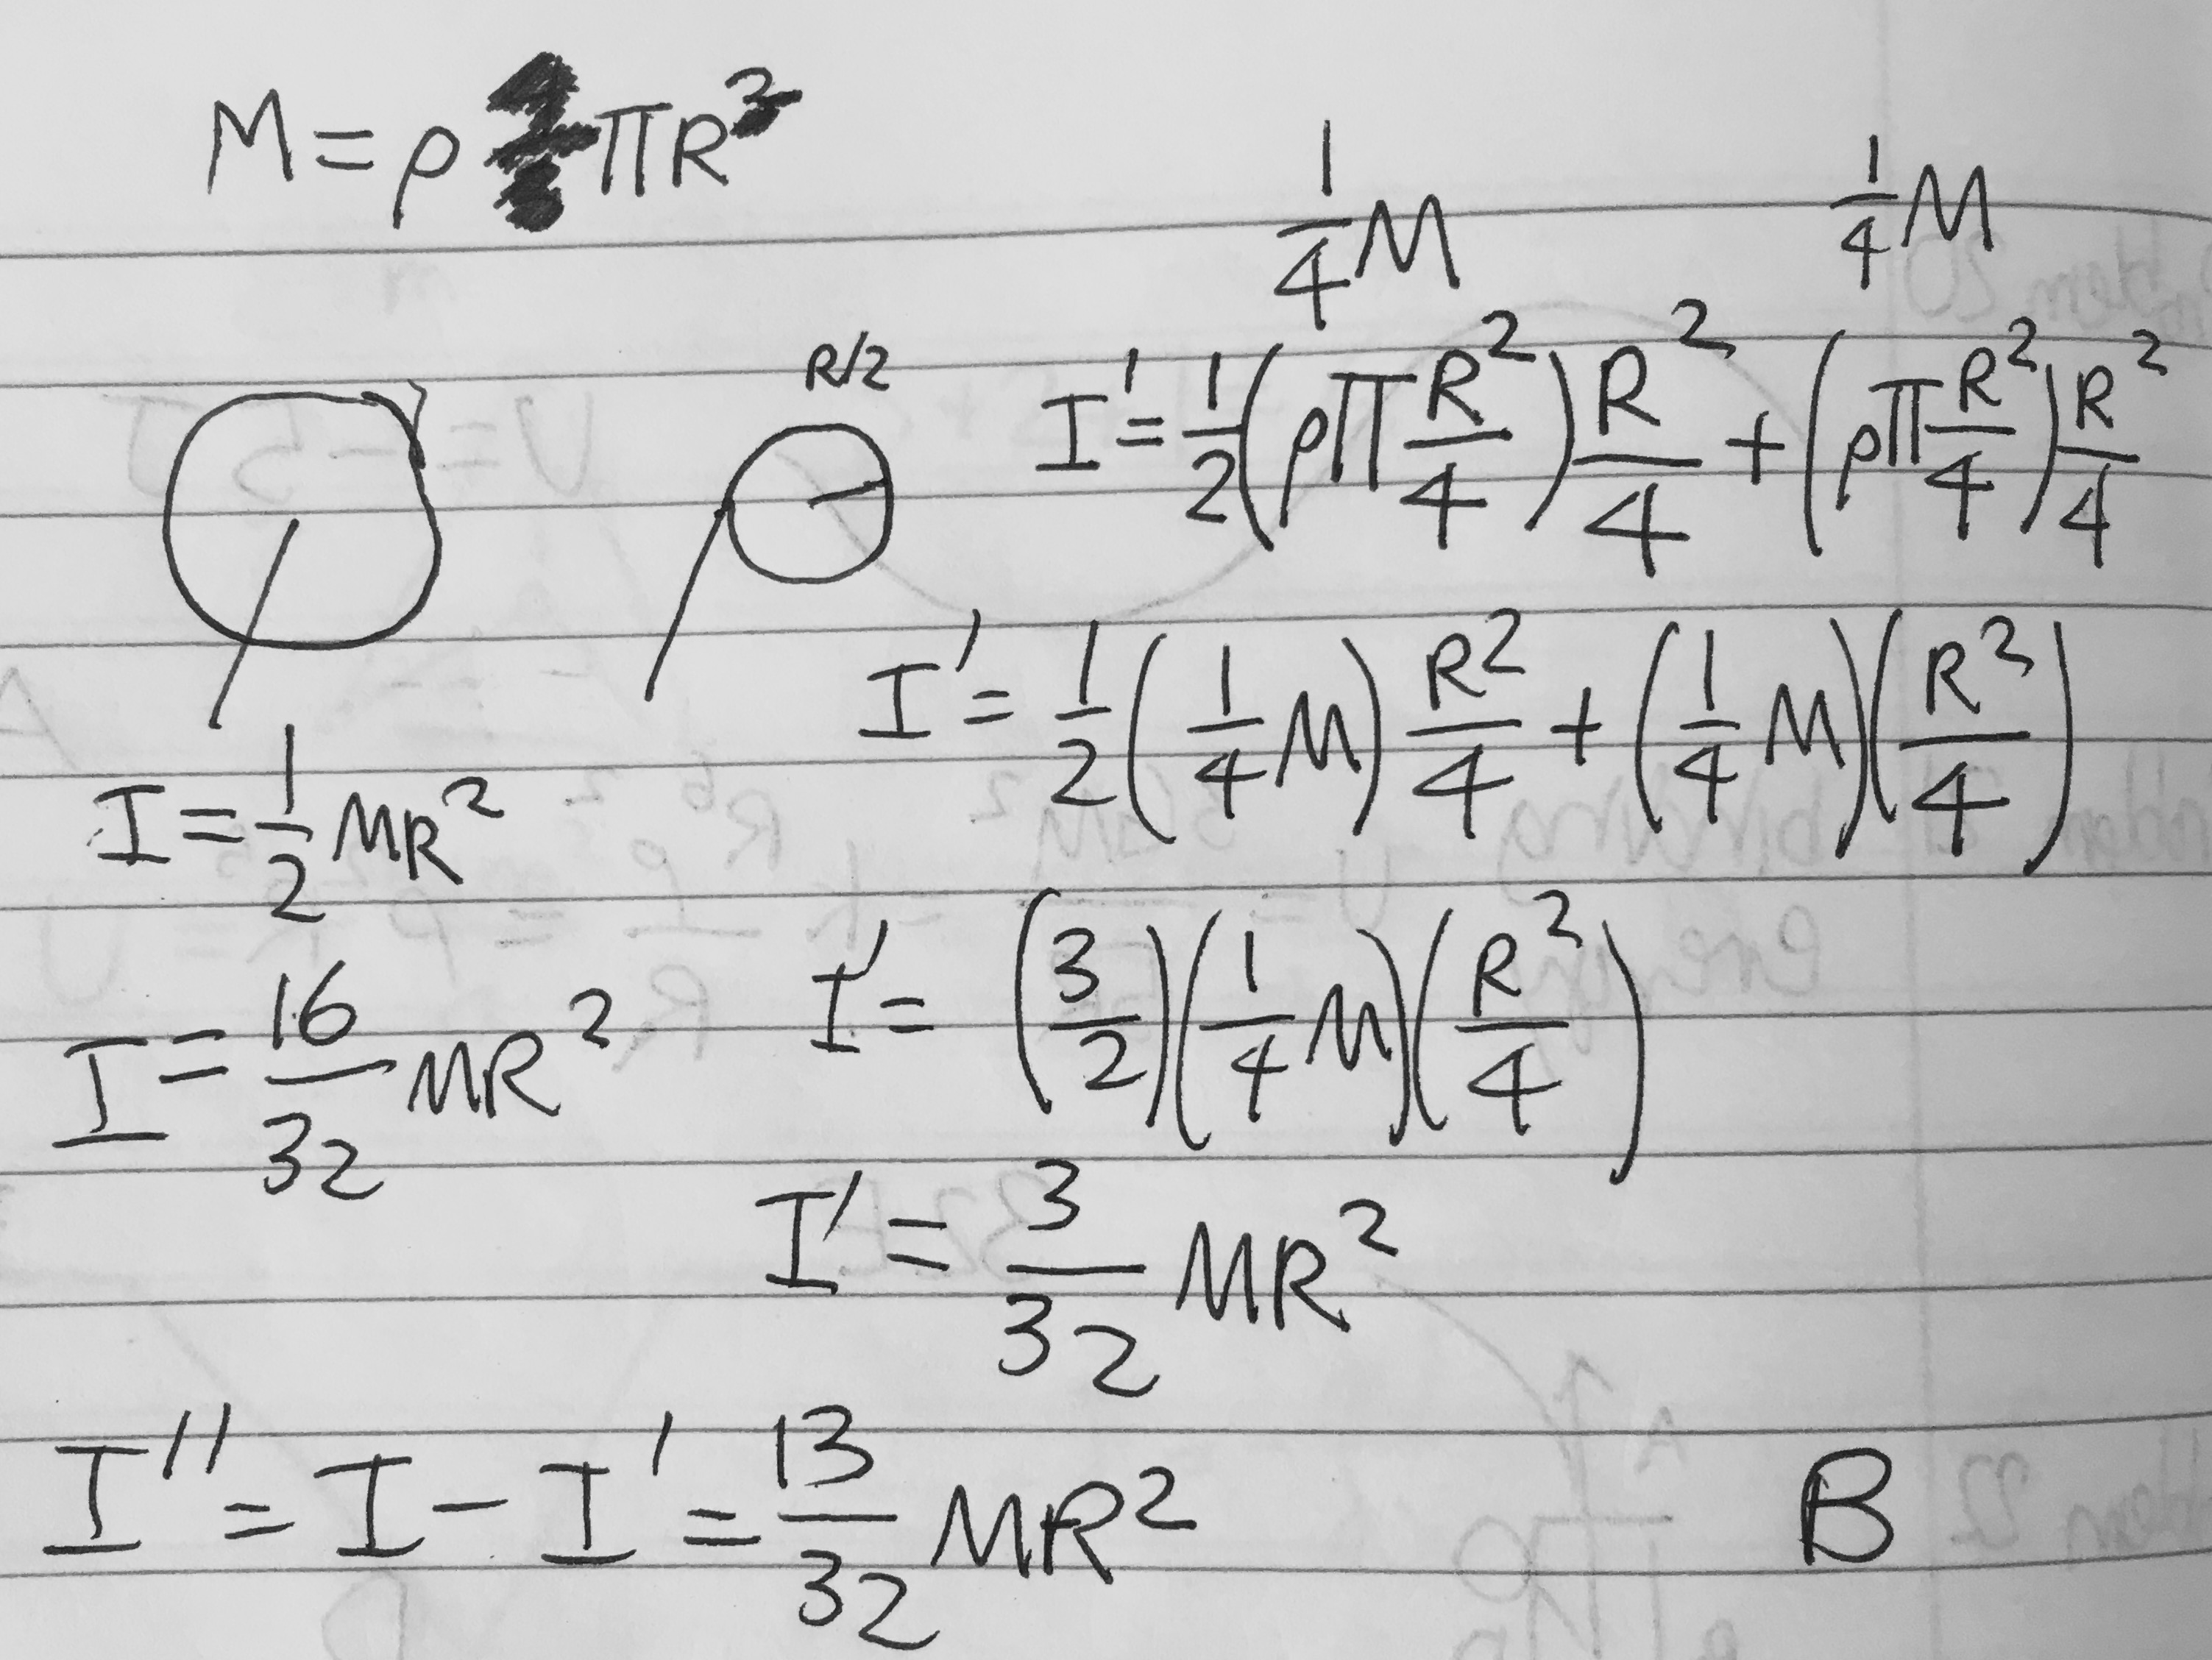 M = ρ πR²
1/4 M
1/4 M
R/2
I' = 1/2 (ρπ R²/4) R²/4 + (ρπ R²/4) R²/4
I' = 1/2 (1/4 M) R²/4 + (1/4 M)(R²/4)
I = 1/2 MR²
I' = (3/2)(1/4 M)(R²/4)
I = 16/32 MR²
I' = 3/32 MR²
I'' = I - I' = 13/32 MR²
B